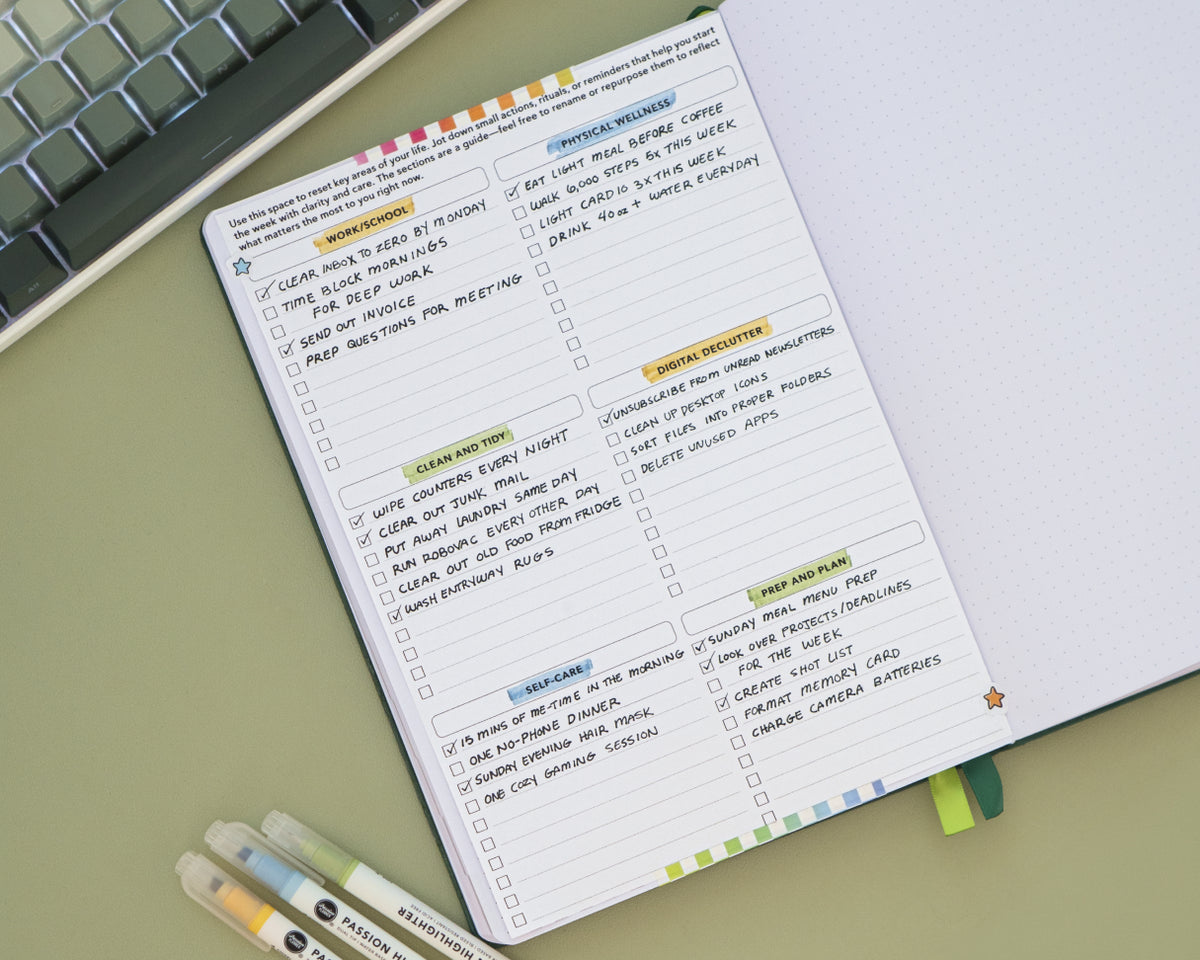 Use this space to reset key areas of your life. Jot down small actions, rituals, or reminders that help you start
the week with clarity and care. The sections are a guide—feel free to rename or repurpose them to reflect
what matters the most to you right now.
WORK/SCHOOL
CLEAR INBOX TO ZERO BY MONDAY
TIME BLOCK MORNINGS
FOR DEEP WORK
SEND OUT INVOICE
PREP QUESTIONS FOR MEETING
CLEAN AND TIDY
WIPE COUNTERS EVERY NIGHT
CLEAR OUT JUNK MAIL
PUT AWAY LAUNDRY SAME DAY
RUN ROBOVAC EVERY OTHER DAY
CLEAR OUT OLD FOOD FROM FRIDGE
WASH ENTRYWAY RUGS
SELF-CARE
15 MINS OF ME-TIME IN THE MORNING
ONE NO-PHONE DINNER
SUNDAY EVENING HAIR MASK
ONE COZY GAMING SESSION
PHYSICAL WELLNESS
EAT LIGHT MEAL BEFORE COFFEE
WALK 6,000 STEPS 5X THIS WEEK
LIGHT CARDIO 3X THIS WEEK
DRINK 40 oz + WATER EVERYDAY
DIGITAL DECLUTTER
UNSUBSCRIBE FROM UNREAD NEWSLETTERS
CLEAN UP DESKTOP ICONS
SORT FILES INTO PROPER FOLDERS
DELETE UNUSED APPS
PREP AND PLAN
SUNDAY MEAL MENU PREP
LOOK OVER PROJECTS/DEADLINES
FOR THE WEEK
CREATE SHOT LIST
FORMAT MEMORY CARD
CHARGE CAMERA BATTERIES
HIGHLIGHTER
PASSION H
PAS